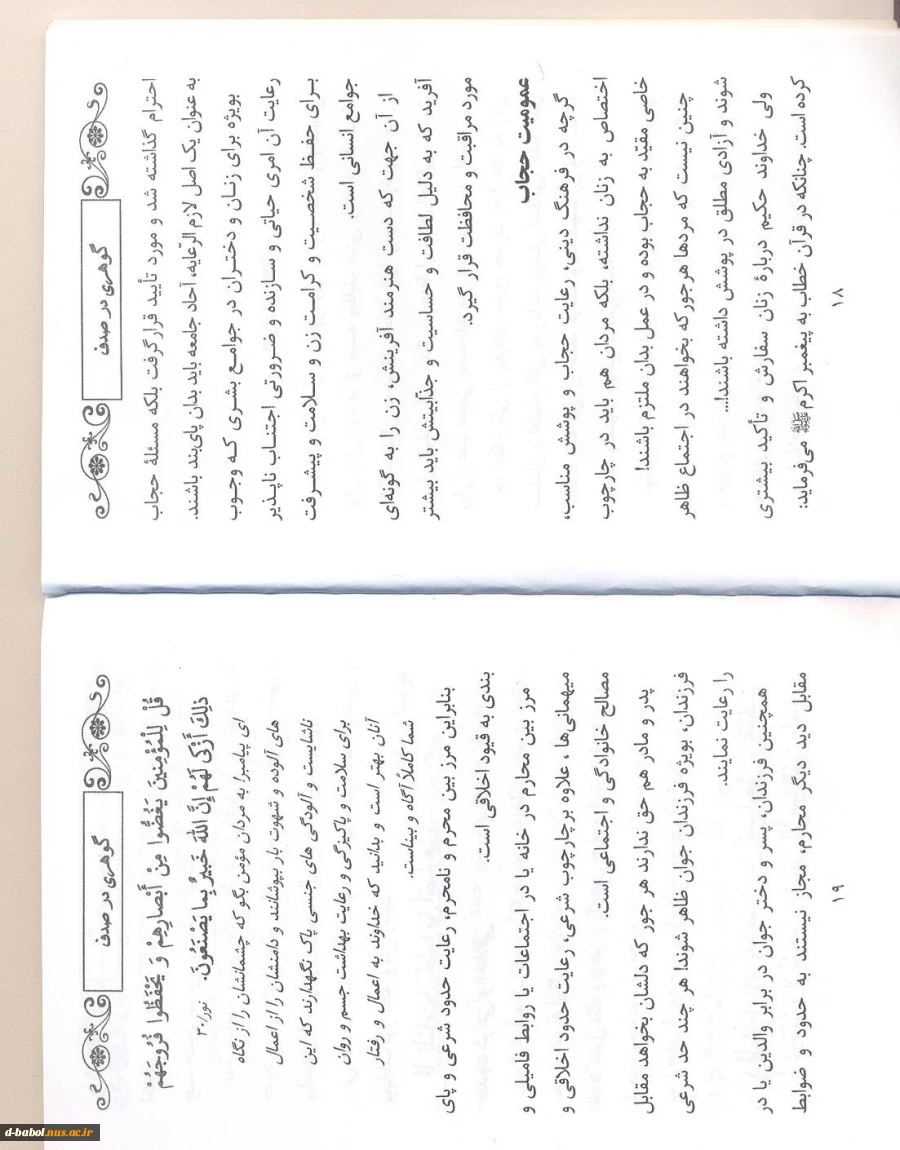 گوهری در صدف
احترام گذاشته شد و مورد تأیید قرار گرفت بلکه مسئلهٔ حجاب
به عنوان یک اصل لازم الرّعایه، آحاد جامعه باید بدان پای‌بند باشند.
بویژه برای زنـان و دختـران در جوامـع بشـری کـه وجـوب
رعایت آن امری حیاتی و سـازنده و ضـرورتی اجتنـاب ناپـذیر
بـرای حفـظ شخصـیت و کرامـت زن و سـلامت و پیشـرفت
جوامع انسانی است.
از آن جهت که دست هنرمند آفرینش، زن را به گونه‌ای
آفرید که به دلیل لطافت و حساسیت و جذّابیتش باید بیشتر
مورد مراقبت و محافظت قرار گیرد.
عمومیت حجاب
گرچه در فرهنگ دینی، رعایت حجاب و پوشش مناسب،
اختصاص به زنان نداشته، بلکه مردان هم باید در چارچوب
خاصی مقید به حجاب بوده و در عمل بدان ملتزم باشند!
چنین نیست که مردها هر جور که بخواهند در اجتماع ظاهر
شوند و آزادی مطلق در پوشش داشته باشند!...
ولی خداوند حکیم دربارهٔ زنان سفارش و تأکید بیشتری
کرده است. چنانکه در قرآن خطاب به پیغمبر اکرم ﷺ می‌فرماید:
۱۸
گوهری در صدف
قُلْ لِلْمُؤْمِنِينَ يَغُضُّوا مِنْ أَبْصارِهِمْ وَ يَحْفَظُوا فُرُوجَهُمْ
ذلِكَ أَزْكى لَهُمْ إِنَّ اللهَ خَبيرٌ بِما يَصْنَعُونَ. نور/۳۰
ای پیامبر! به مردان مؤمن بگو که چشمانشان را از نگاه
های آلوده و شهوت بار بپوشانند و دامنشان را از اعمال
ناشایست و آلودگی های جنسی پاک نگهدارند که این
برای سلامت و پاکیزگی و رعایت بهداشت جسم و روان
آنان بهتر است و بدانید که خداوند به اعمال و رفتار
شما کاملاً آگاه و بیناست.
بنابراین مرز بین محرم و نامحرم، رعایت حدود شرعی و پای
بندی به قیود اخلاقی است.
مرز بین محارم در خانه یا در اجتماعات یا روابط فامیلی و
میهمانی‌ها ، علاوه بر چارچوب شرعی، رعایت حدود اخلاقی و
مصالح خانوادگی و اجتماعی است.
پدر و مادر هم حق ندارند هر جور که دلشان بخواهد مقابل
فرزندان، بویژه فرزندان جوان ظاهر شوند! هر چند حد شرعی
را رعایت نمایند.
همچنین فرزندان، پسر و دختر جوان در برابر والدین یا در
مقابل دید دیگر محارم، مجاز نیستند به حدود و ضوابط
۱۹
d-babol.nus.ac.ir